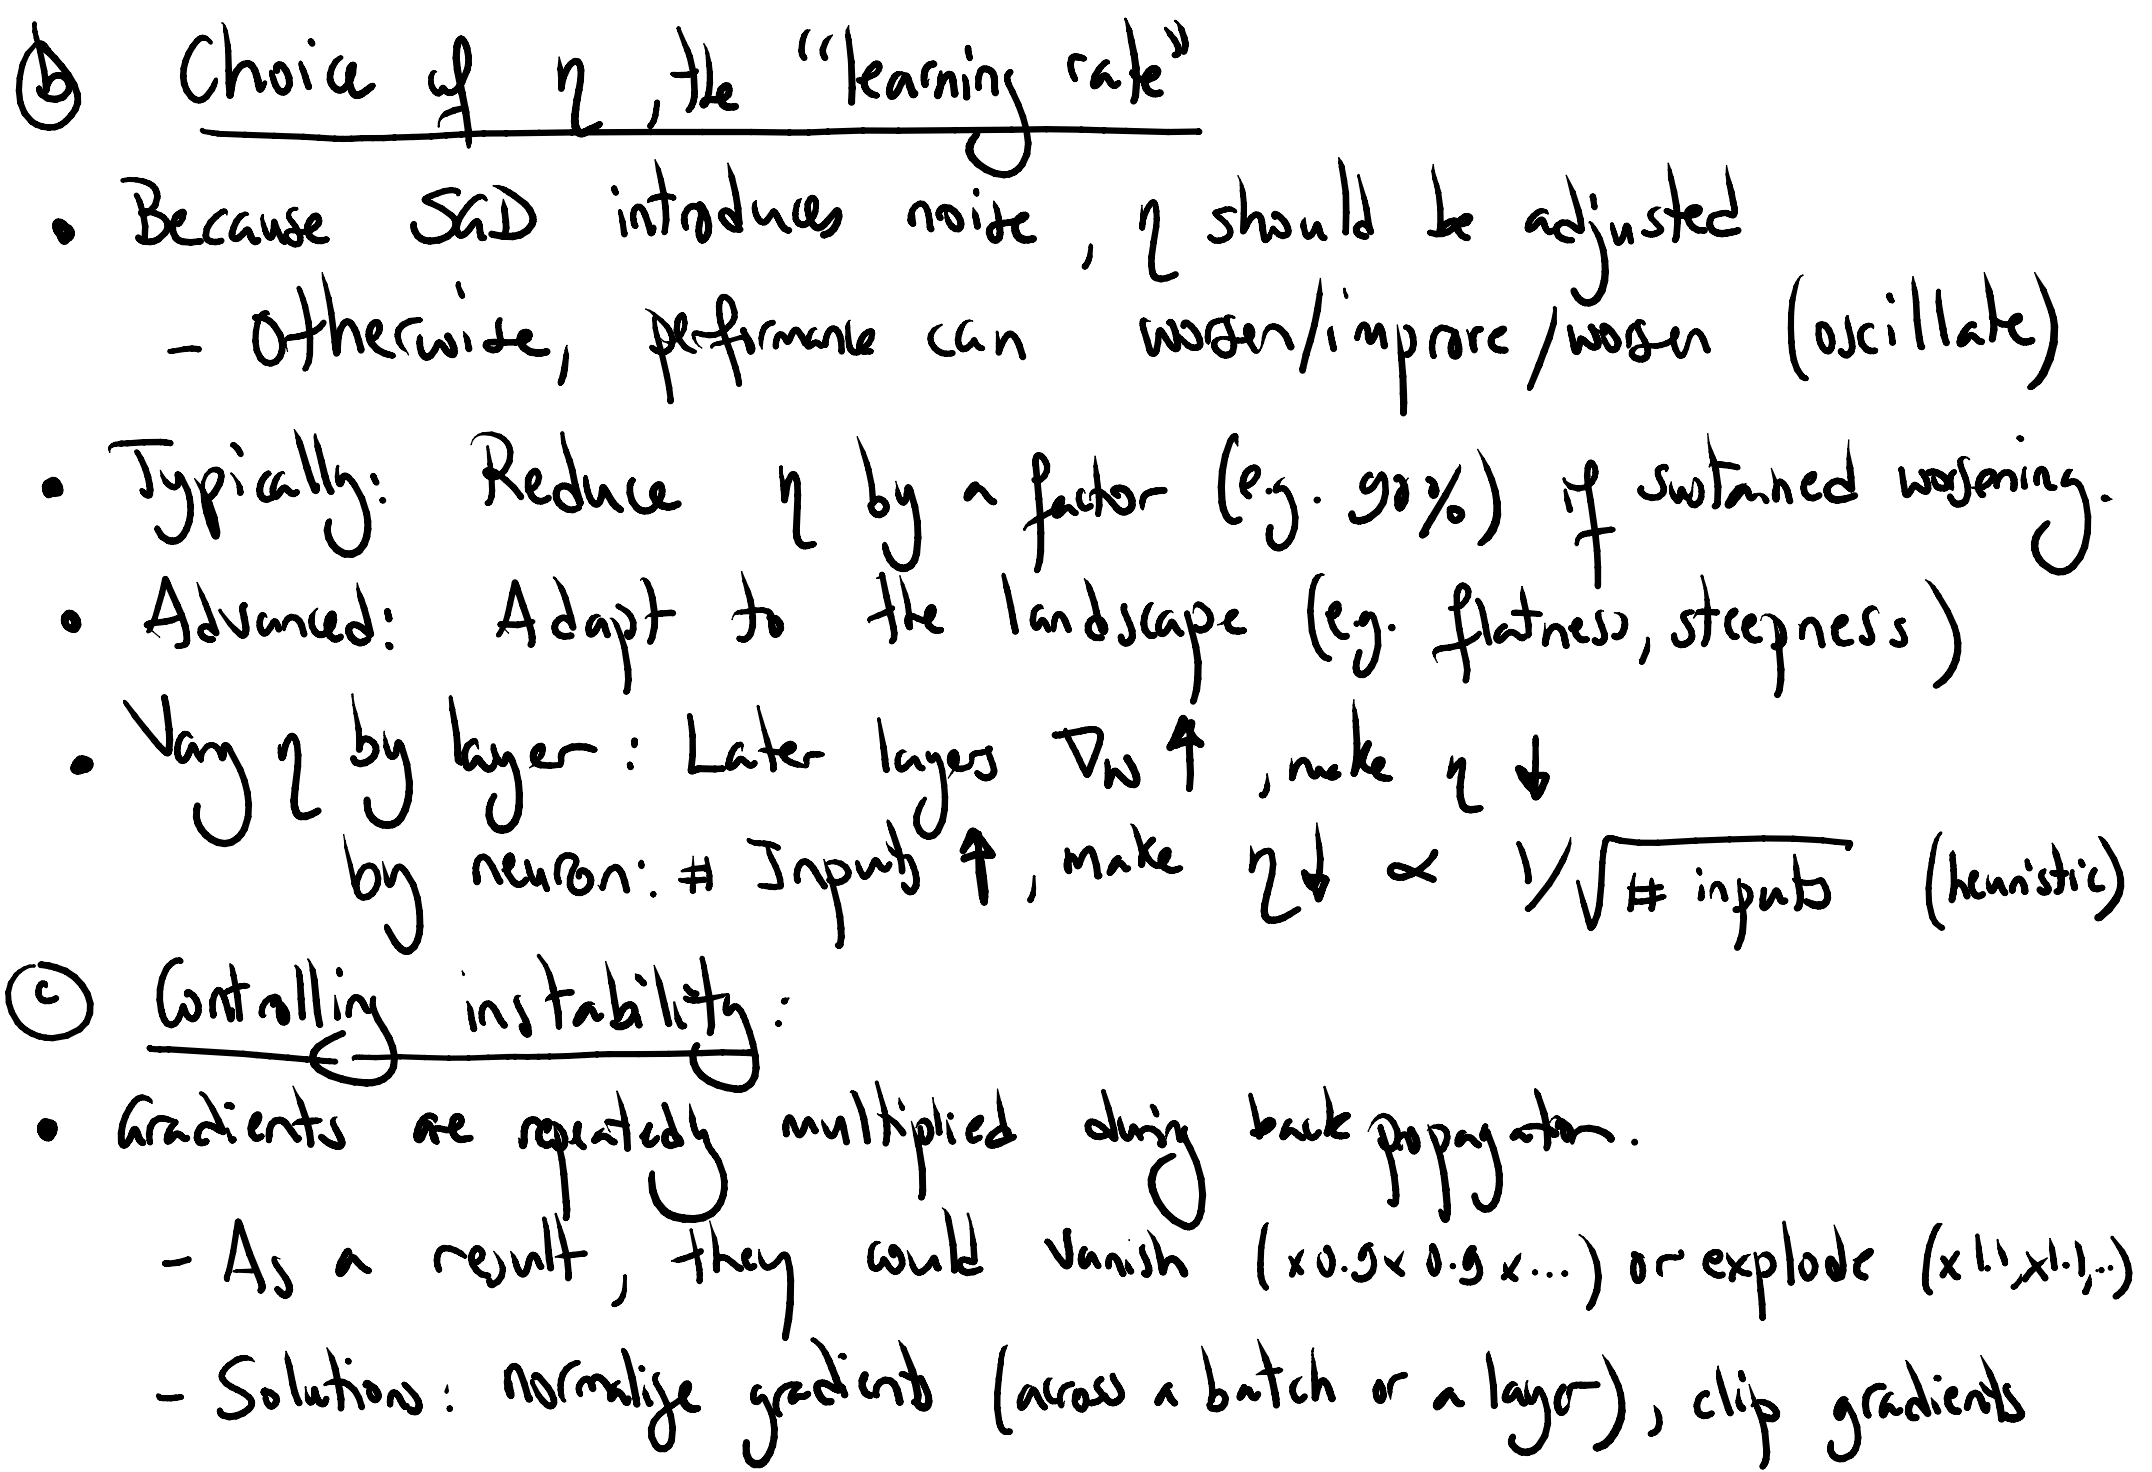 ⓑ Choice of η, the "learning rate"
• Because SGD introduces noise, η should be adjusted
- Otherwise, performance can worsen/improve/worsen (oscillate)
• Typically: Reduce η by a factor (e.g. 90%) if sustained worsening.
• Advanced: Adapt to the landscape (e.g. flatness, steepness)
• Vary η by layer: Later layers ∇w ↑, make η ↓
by neuron: # Inputs ↑, make η↓ ∝ 1/√# inputs (heuristic)
ⓒ Controlling instability:
• Gradients are repeatedly multiplied during back propagation.
- As a result, they could vanish (x 0.9 x 0.9 x...) or explode (x 1.1, x1.1,..)
- Solutions: normalize gradients (across a batch or a layer), clip gradients